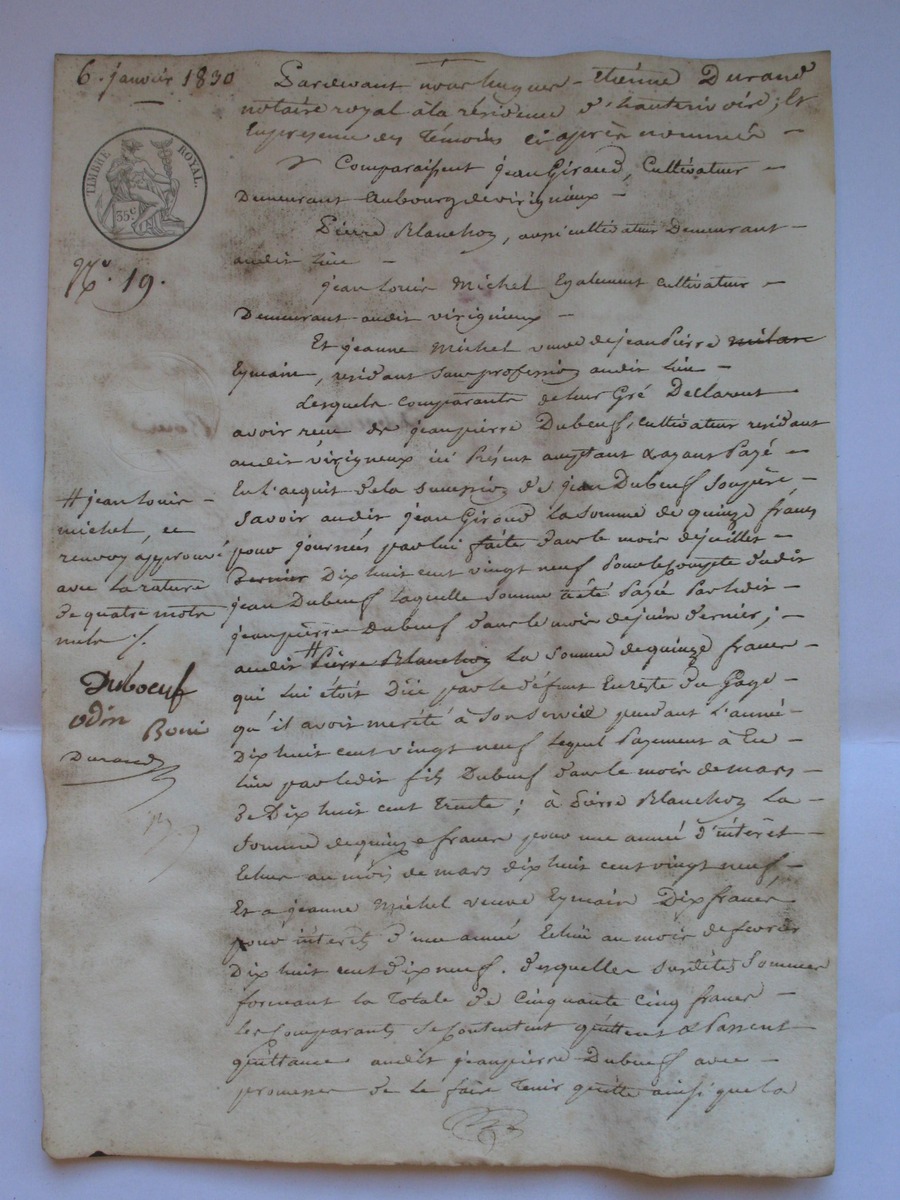 6. janvier 1830
TIMBRE ROYAL.
35 c
N.º 19.
Pardevant nous hugues - étienne Durand
notaire royal à la résidence d'hauterivoire; Et
En presence des Témoins ci après nommés -
Comparaissent jean Giraud, Cultivateur -
Demeurant aubourg de virignieux -
Pierre Blanchon, aussi cultivateur Demeurant -
audit lieu -
jean Louis Michel Egalement cultivateur -
Demeurant audit virignieux -
Et jeanne Michel veuve de jean Pierre
Eymain, residant sans profession audit lieu -
Lesquels comparants de leur Gré Declarent
avoir recu de jeanpierre Duboeuf, cultivateur residant
audit virigneux ici Présent acceptant & ayant Payé -
En l'acquit de la succession de jean Duboeuf son père -
Savoir audit jean Giraud la somme de quinze francs
pour journées par lui faite dans le mois de juillet -
Dernier Dix huit cent vingt neuf Pour le compte dudit
jean Duboeuf laquelle somme a été Payée Par ledit -
jeanpierre Duboeuf dans le mois de juin dernier; -
audit # Pierre Blanchon la somme de quinze francs -
qui lui étoit Düe par le défunt En reste du Gage -
qu'il avoit merité à son service pendant l'année
Dix huit cent vingt neuf lequel Payement à Eu
lieu par ledit fils Duboeuf dans le mois de mars -
de Dix huit cent Trente; à Pierre Blanchon la -
somme de quinze francs pour une année d'intérêt -
Echue au mois de mars dix huit cent vingt neuf, -
Et a jeanne Michel veuve Eymain Dix francs
pour intérêts d'une année Echüe au mois de fevrier
Dix huit cent dix neuf. desquelles susdites Sommes
formant la Totale de Cinquante Cinq francs -
les comparants se contentent quittent & Passent
quittance audit jeanpierre Duboeuf avec -
promesse de le faire tenir quitte ainsi que la
# jean Louis -
michel, ce
renvoy approuvé
avec la rature
de quatre mots
nuls ./.
Duboeuf
odin
Boni
Durand